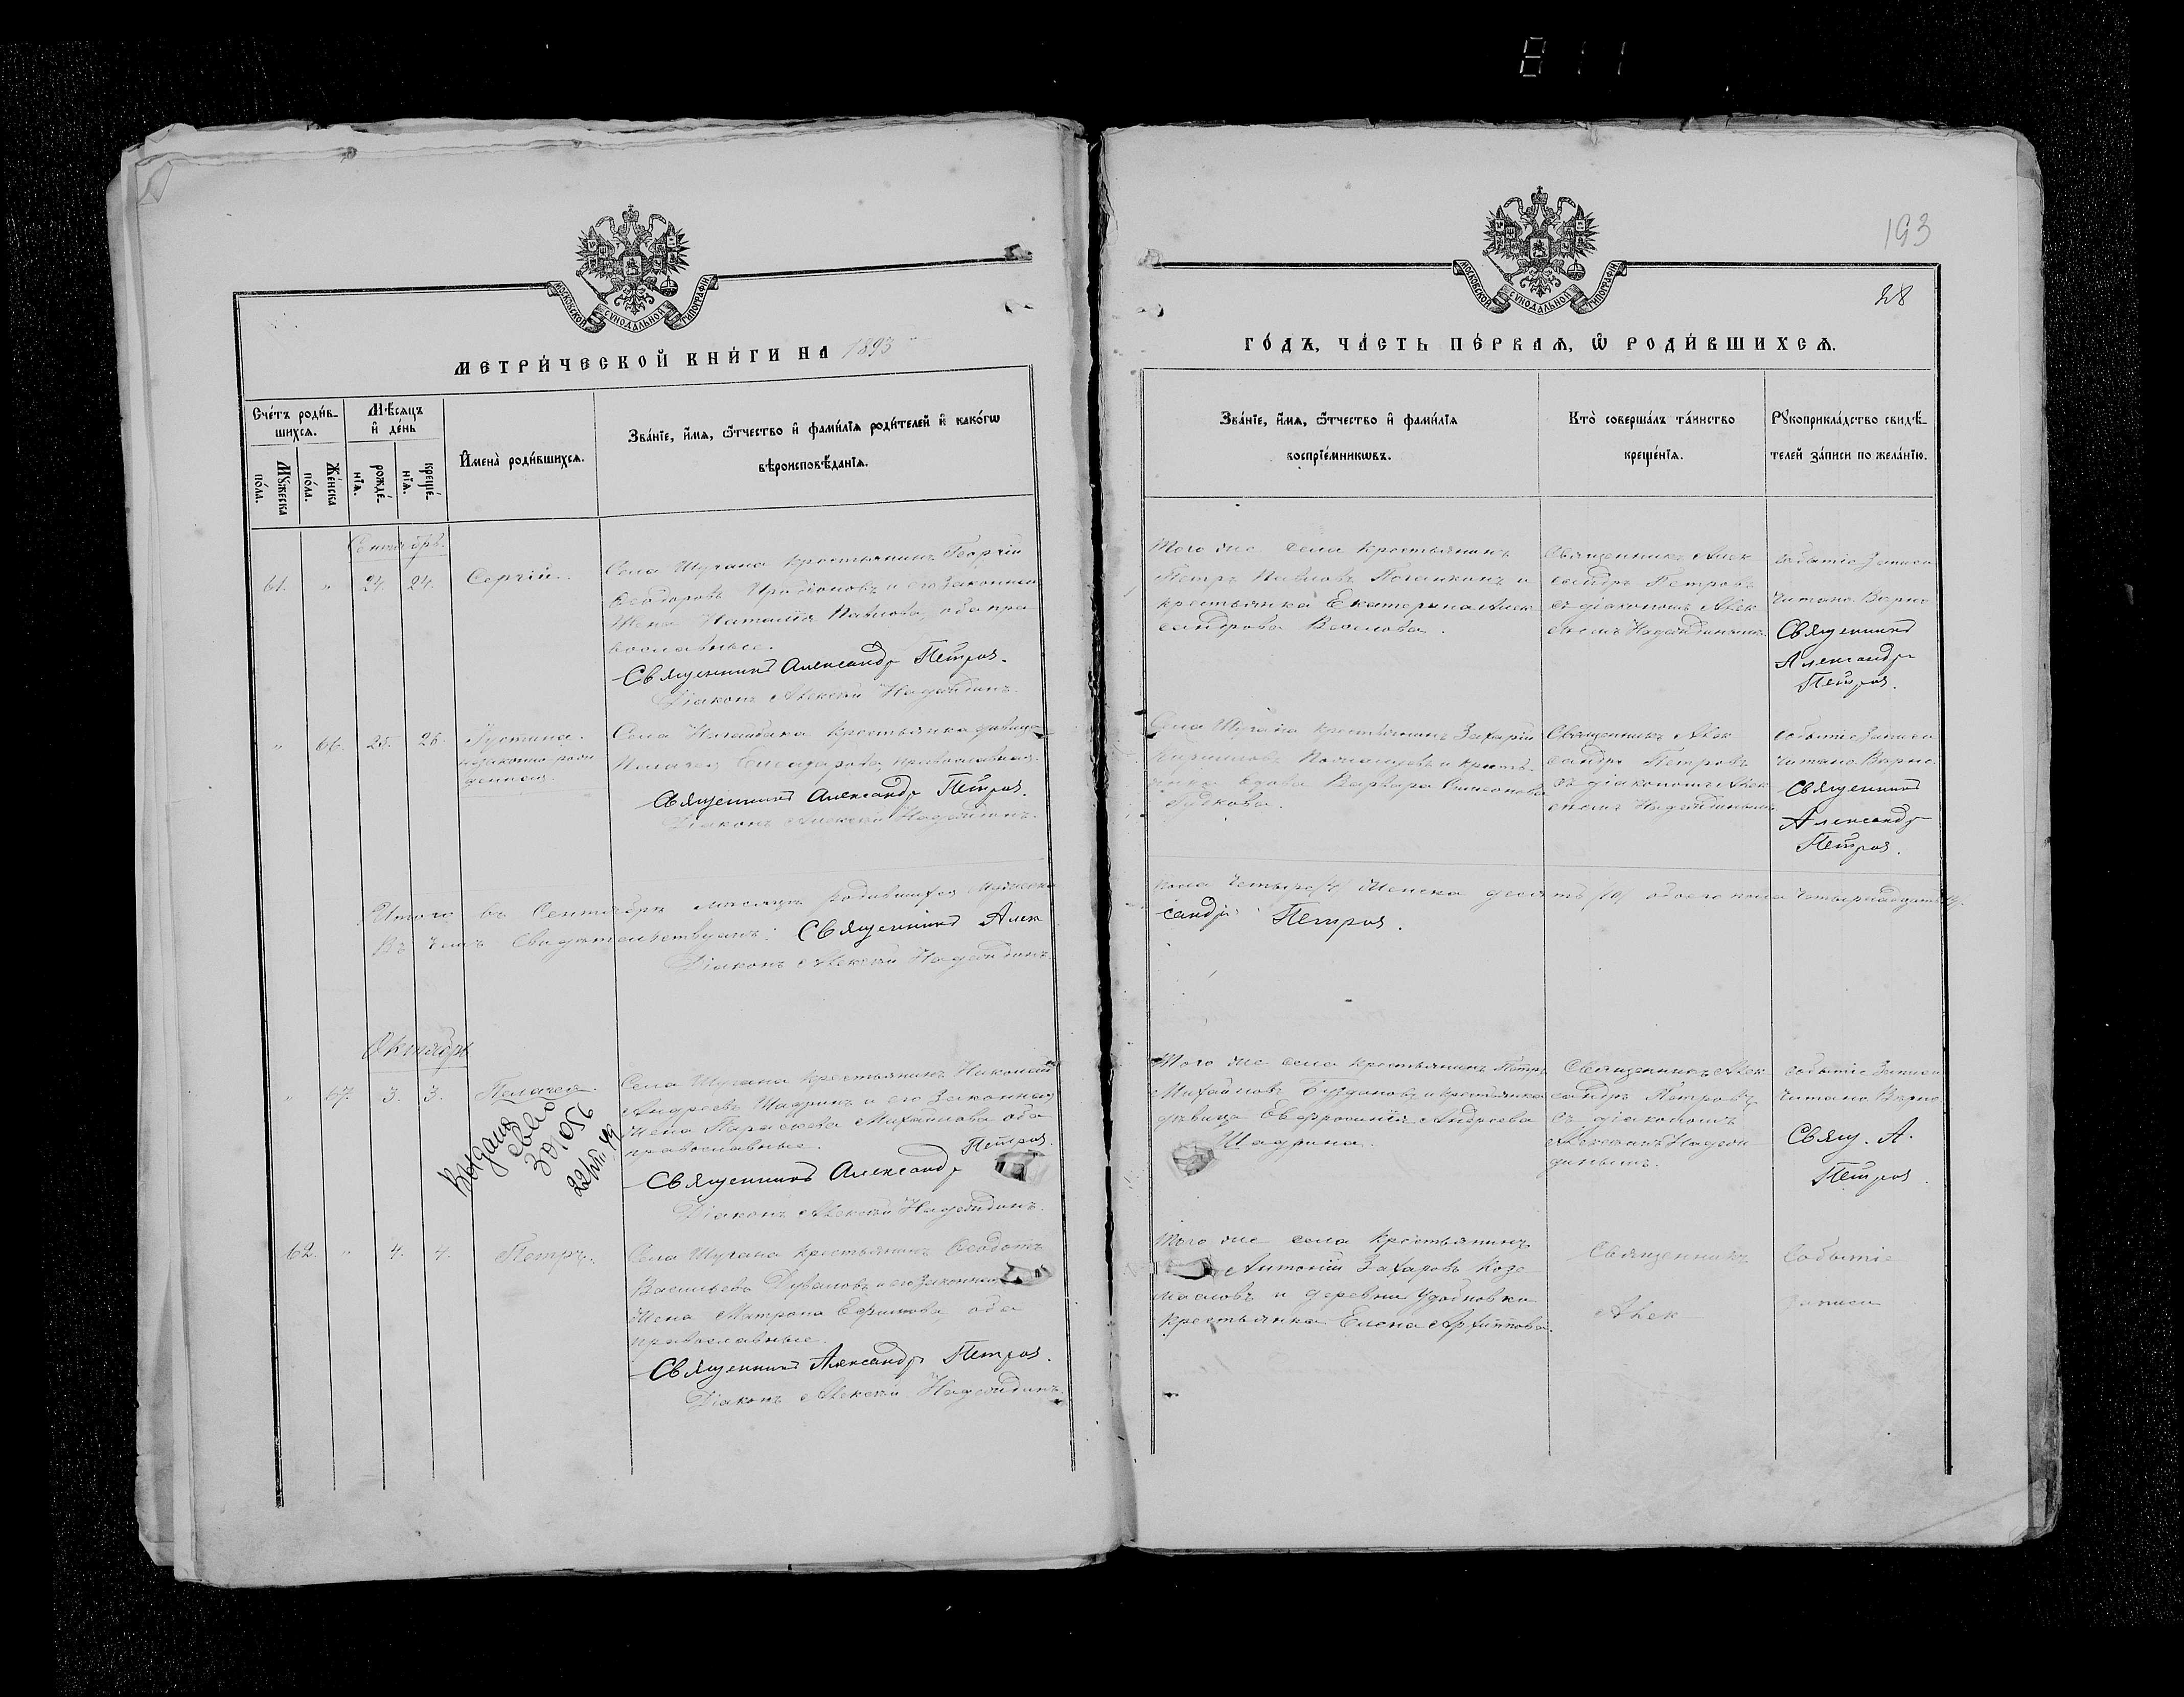 811
193
28
МОСКОВСКОЙ СѴНОДАЛЬНОЙ ТИПОГРАФІИ
МОСКОВСКОЙ СѴНОДАЛЬНОЙ ТИПОГРАФІИ
МЕТРИ́ЧЕСКОЙ КНИ́ГИ НА 1893
ГО́ДЪ, ЧА́СТЬ ПЕ́РВАѦ, Ѿ РОДИ́ВШИХСѦ.
Сче́тъ роди́в-
шихсѧ.
Мѣ́сѧцъ
и҆ де́нь
Мꙋ́жеска
по́ла.
Же́нска
по́ла.
рожде́-
нїѧ.
креще́-
нїѧ.
И҆мена̀ роди́вшихсѧ.
Зва́нїе, и҆́мѧ, ѻ҆́тчество и҆ фами́лїѧ роди́телей и҆ како́гѡ
вѣроисповѣ́данїѧ.
Зва́нїе, и҆́мѧ, ѻ҆́тчество и҆ фами́лїѧ
воспрїе́мникѡвъ.
Кто̀ соверша́лъ та́инство
креще́нїѧ.
Рꙋкоприкла́дство свидѣ́-
телей за́писи по жела́нїю.
Сентябрь.
61. " 24. 24. Сергій.
Села Шугана крестьянинъ Георгій
Ѳеодоровъ и его законная
жена Наталія Павлова, оба пра
вославные.
Священникъ Александръ Петровъ.
Діаконъ Алексѣй Надеждинъ.
Того же села крестьянинъ
Петръ Павловъ и
крестьянка Екатерина Алек
сандрова
Священникъ Алек
сандръ Петровъ
съ діакономъ Алек
сѣемъ Надеждинымъ.
Событіе Записи
Читано Вѣрно
Священникъ
Александръ
Петровъ.
" 66. 25. 26. Іустина.
незаконно рож
денная.
Села крестьянка дѣвица
Пелагея православная.
Священникъ Александръ Петровъ.
Діаконъ Алексѣй Надеждинъ.
Села Шугана крестьянинъ Захарій
и кресть
янка вдова Варвара Симонова
Гудкова.
Священникъ Алек
сандръ Петровъ
съ діакономъ Алек
сѣемъ Надеждинымъ
Событіе Записи
Читано Вѣрно.
Священникъ
Александръ
Петровъ.
Итого въ Сентябрѣ мѣсяцѣ родившихся Мужеска
пола Четыре /4/ Женска десять /10/ обоего пола Четырнадцать
Въ чемъ Свидѣтельствуемъ: Священникъ Алек
сандръ Петровъ.
Діаконъ Алексѣй Надеждинъ.
Октябрь
" 67. 3. 3. Пелагея.
Выдано
св-во
301056
22/VIII 49
Села Шугана крестьянинъ Николай
Андреевъ Шадринъ и его законная
жена Параскева Михайлова оба
православные.
Священникъ Александръ Петровъ.
Діаконъ Алексѣй Надеждинъ.
Того же села крестьянинъ Петръ
Михайловъ и крестьянка
дѣвица Евфросинія Андреева
Шадрина.
Священникъ Алек
сандръ Петровъ
съ діакономъ
Алексѣемъ Надеж
динымъ.
Событіе Записи
Читано Вѣрно
Свящ. А.
Петровъ.
62. " 4. 4. Петръ.
Села Шугана крестьянинъ Ѳеодотъ
Васильевъ и его законная
жена Матрона Ефимова, оба
православные.
Священникъ Александръ Петровъ.
Діаконъ Алексѣй Надеждинъ.
Того же села крестьянинъ
Антоній Захаровъ Козе
масловъ и деревни Удобновки
крестьянка Елена Архиппова.
Священникъ
Алек
Событіе
Записи